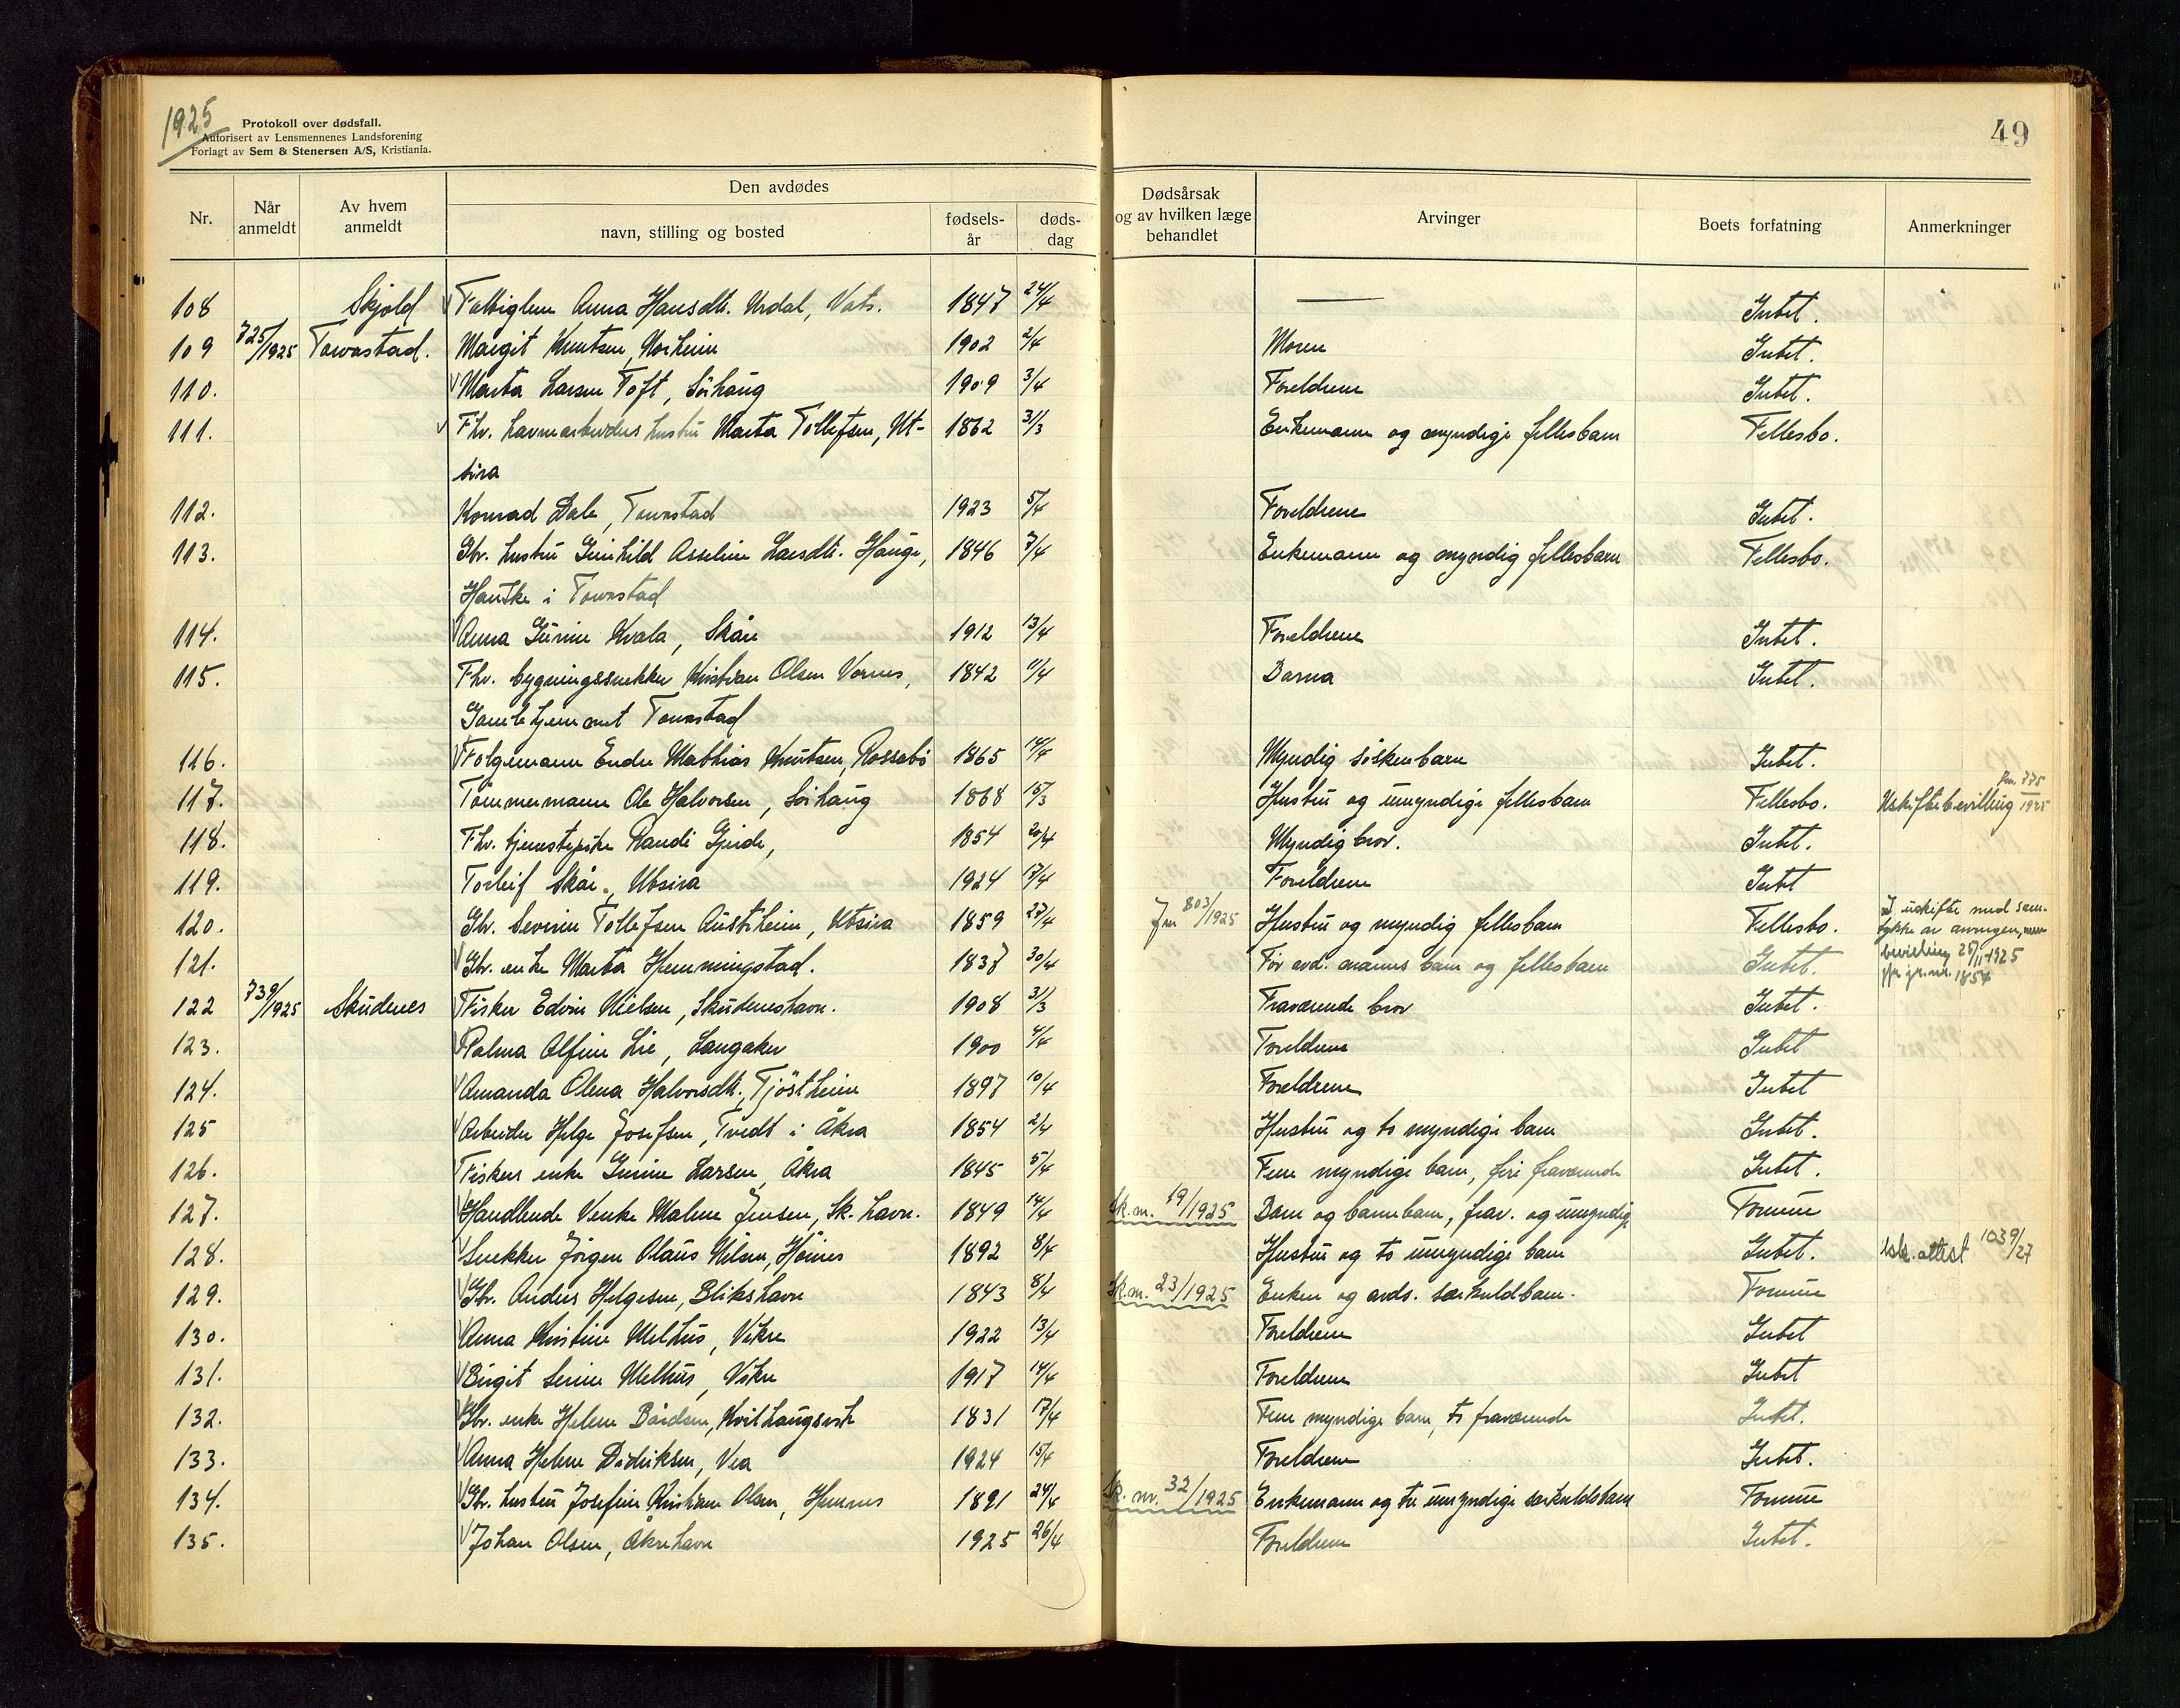 1925
Protokoll over dødsfall.
Autorisert av Lensmennenes Landsforening
Forlagt av Sem & Stenersen A/S, Kristiania.
49
Nr. Når anmeldt Av hvem anmeldt Den avdødes navn, stilling og bosted fødsels-år døds-dag Dødsårsak og av hvilken læge behandlet Arvinger Boets forfatning Anmerkninger
108 Skjold Fattiglem Anna Hansdtr. Urdal, Vats. 1847 24/4 — Intet.
109 725/1925 Torvastad. Margit Knutsen, Norheim 1902 2/4 Moren Intet.
110. Marta Larsen Toft, Sørhaug 1909 3/4 Foreldrene Intet.
111. Fhv. havnearbeiders hustru Marta Tollefsen, Ut- 1862 31/3 Enkemann og myndige fellesbarn Fellesbo.
sira
112. Konrad Dale, Torvastad 1923 5/4 Foreldrene Intet.
113. Gbr. hustru Gunhild Asseline Larsdtr. Hauge, 1846 7/4 Enkemann og myndig fellesbarn Fellesbo.
i Torvastad
114. Anna Gurine Kvala, Skåre 1912 13/4 Foreldrene Intet.
115. Fhv. bygningssnekker Kristian Olsen Vornes, 1842 Barna Intet.
Gamlehjemmet Torvastad
116. Folgemann Endre Mathias Knutsen, Rossabø 1865 14/4 Myndig søskenbarn Intet.
117. Tømmermann Ole Halvorsen, Sørhaug 1868 15/3 Hustru og umyndige fellesbarn Fellesbo. Uskiftebevilling jnr. 775/1925
118. Fhv. tjenestepike Randi Gjerde, 1854 20/4 Myndig bror. Intet.
119. Torleif Skår, Utsira 1924 17/4 Foreldrene Intet
120. Gbr. Severin Tollefsen Austrheim, Utsira 1859 27/4 Jnr 803/1925 Hustru og myndig fellesbarn Fellesbo. I uskifte med sam-
tykke av arvingen,
121. Gbr. enke Marta Hemmingstad. 1837 30/4 Før avd. manns barn og fellesbarn Intet. bevilling 25/11-1925
jfr. jr.nr. 1854
122 739/1925 Skudenes Fisker Edvin Nielsen, Skudeneshavn. 1908 31/3 Fraværende bror Intet.
123. Palma Alfine Lie, Langåker 1900 4/4 Foreldrene Intet
124. Amanda Olena Halvorsdtr., Tjøstheim 1897 10/4 Foreldrene Intet
125 Arbeider Helge Josefsen, Tvedt i Åkra 1854 2/4 Hustru og to myndige barn Intet.
126. Fiskers enke Gurine Larsen, Åkra 1845 5/4 Fem myndige barn, fire fraværende Intet.
127. Handlende Venke Malene Jensen, Sk. havn. 1849 14/4 Sk.nr. 19/1925 Barn og barnebarn, frav. og umyndige Formue
128. Snekker Jørgen Olaus Nilsen, Høines 1892 8/4 Hustru og to umyndige barn Intet. Usk. attest 1039/27
129. Gbr. Anders Helgesen, Blikshavn 1843 8/4 Sk.nr. 23/1925 Enken og avds. særkuldbarn. Formue
130. Anna Kristine Melhus, Vikre 1922 13/4 Foreldrene Intet
131. Birgit Serine Melhus, Vikre 1917 14/4 Foreldrene Intet
132. Gbr. enke Helene Bårdsen, Kvilhaugsvik 1831 17/4 Fem myndige barn, to fraværende Intet.
133. Anna Helene Didriksen, Vea 1924 15/4 Foreldrene Intet.
134. Gbr. hustru Josefine Kristiane Olsen, Hemnes 1891 24/4 Sk. nr. 32/1925 Enkemann og tre umyndige særkuldsbarn Formue
135. Johan Olsen, Åkrehavn 1925 26/4 Foreldrene Intet.